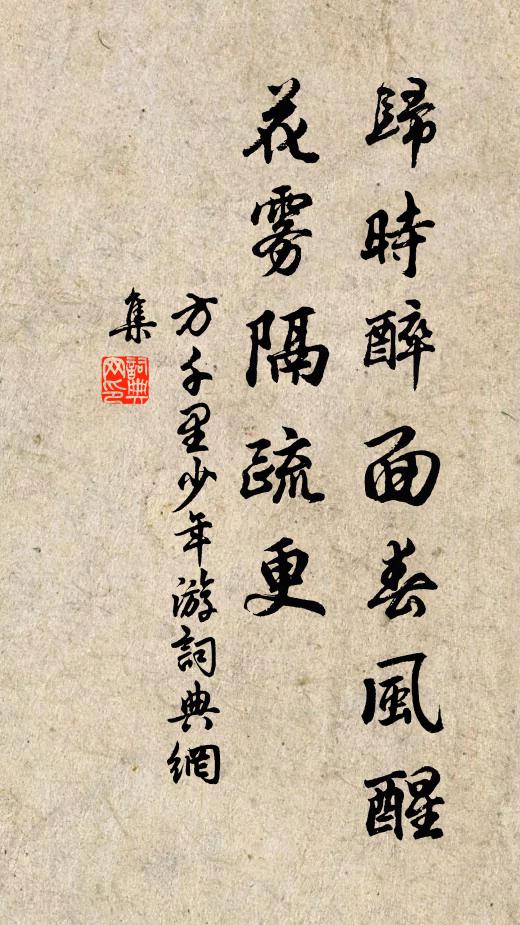 歸時醉面春風醒
花雾隔疏更
方千里少年游詞典網
集
詞典网印